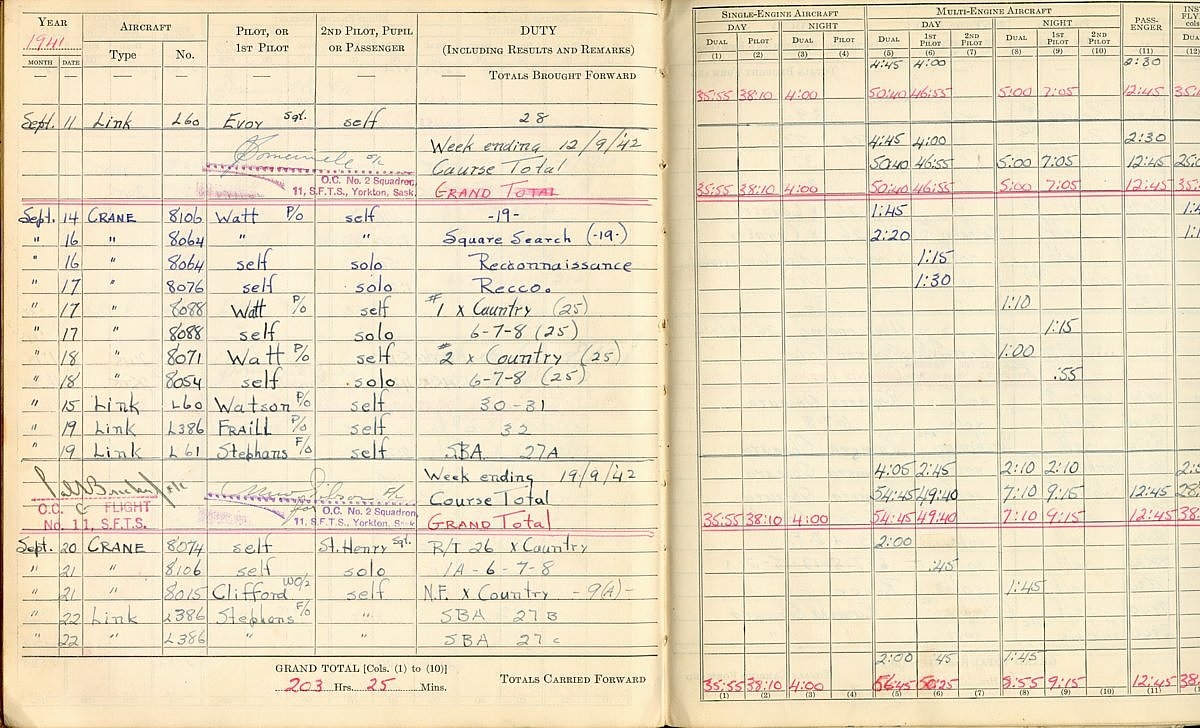 YEAR AIRCRAFT PILOT, OR 1ST PILOT 2ND PILOT, PUPIL OR PASSENGER DUTY (INCLUDING RESULTS AND REMARKS) SINGLE-ENGINE AIRCRAFT MULTI-ENGINE AIRCRAFT PASS-ENGER
1941 DAY NIGHT DAY NIGHT
MONTH DATE Type No. DUAL PILOT DUAL PILOT DUAL 1ST PILOT 2ND PILOT DUAL 1ST PILOT 2ND PILOT
(1) (2) (3) (4) (5) (6) (7) (8) (9) (10) (11)
— — — — — — TOTALS BROUGHT FORWARD 4:45 4:00 2:30
35:55 38:10 4:00 50:40 46:55 5:00 7:05 12:45
Sept. 11 Link L60 Evoy Sgt. self 28
Week ending 12/9/42 4:45 4:00 2:30
Course Total 50:40 46:55 5:00 7:05 12:45
O.C. No. 2 Squadron,
11, S.F.T.S., Yorkton, Sask. GRAND TOTAL 35:55 38:10 4:00 50:40 46:55 5:00 7:05 12:45
Sept. 14 CRANE 8106 Watt P/O self -19- 1:45
" 16 " 8064 " " Square Search (-19-) 2:20
" 16 " 8064 self solo Reconnaissance 1:15
" 17 " 8076 self solo Recco. 1:30
" 17 " 8088 Watt P/O self #1 x Country (25) 1:10
" 17 " 8088 self solo 6-7-8 (25) 1:15
" 18 " 8071 Watt P/O self #2 x Country (25) 1:00
" 18 " 8054 self solo 6-7-8 (25) .55
" 15 Link L60 Watson P/O self 30-31
" 19 Link L386 FRAILL P/O self 32
" 19 Link L61 Stephans F/O self SBA. 27A
Week ending 19/9/42 4:05 2:45 2:10 2:10
O.C. C FLIGHT O.C. No. 2 Squadron, Course Total 54:45 49:40 7:10 9:15 12:45
No. 11, S.F.T.S. 11, S.F.T.S., Yorkton, Sask GRAND TOTAL 35:55 38:10 4:00 54:45 49:40 7:10 9:15 12:45
Sept. 20 CRANE 8074 self St. Henry Sgt. R/T 26 x Country 2:00
" 21 " 8106 self solo 1A-6-7-8 .45
" 21 " 8015 Clifford WO/2 self N.F. x Country -9(A)- 1:45
" 22 Link L386 Stephans F/O " SBA 27B
" 22 L386 " " SBA 27c
2:00 .45 1:45
GRAND TOTAL [Cols. (1) to (10)]
203 Hrs. 25 Mins. TOTALS CARRIED FORWARD 35:55 38:10 4:00 56:45 50:25 8:55 9:15 12:45
(1) (2) (3) (4) (5) (6) (7) (8) (9) (10) (11)